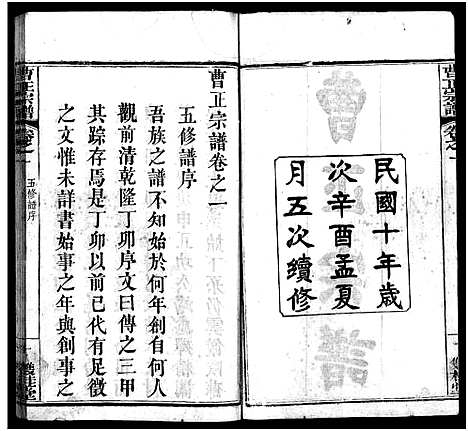 民國十年歲
次辛酉孟夏
月五次續修
曹正宗譜卷之一
五修譜序
吾族之譜不知始於何年創自何人
觀前清乾隆丁卯序文曰傳之三甲
其踪存焉是丁卯以前已代有足徵
之文惟未詳書始事之年與創事之
曹正宗譜
卷之一
五修譜序
一
雙桂堂